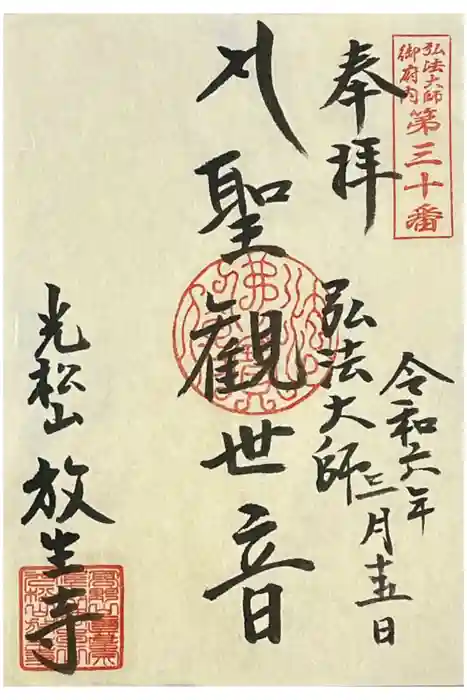 弘法大師
御府内
第三十番
奉拝
弘法大師
令和六年三月十五日
聖観世音
光松山
放生寺